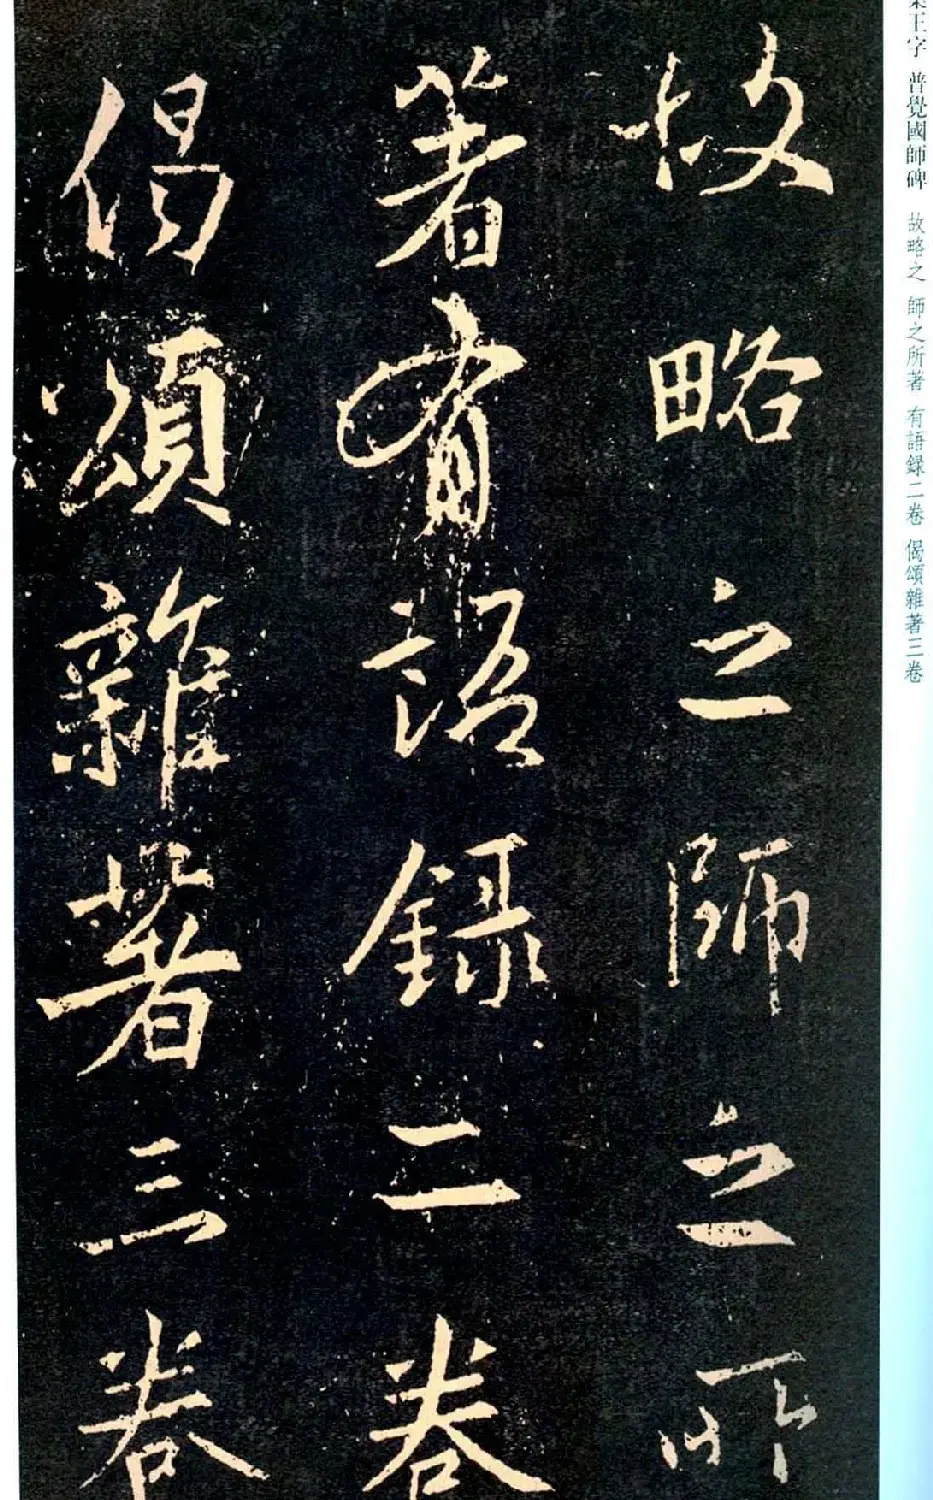 故略之師之所
著有語録二卷
偈頌雜著三卷
王字 普覺國師碑 故略之 師之所著 有語録二卷 偈頌雜著三卷